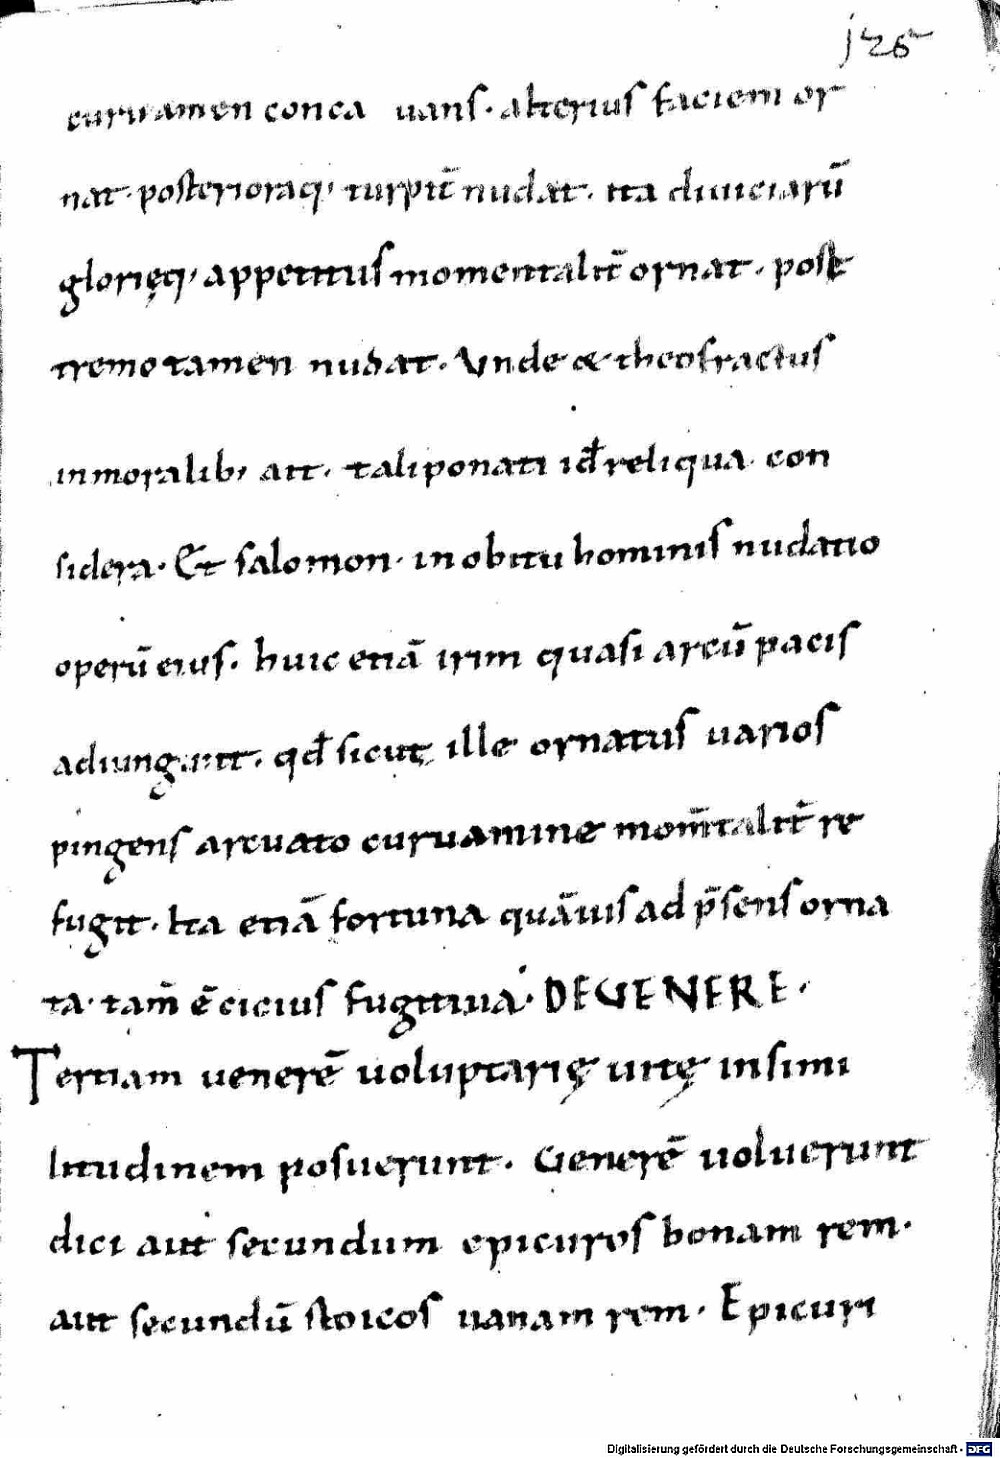 j26
curuamen conca uans · alterius faciem or
nat · posterioraq; turpit̄ nudat · ita diuiciarū
glorięq; appetitus momentalit̄ ornat · post
tremo tamen nudat · Vnde & theofractus
inmoralib; ait · tali ponati id̄ reliqua con
sidera · Et salomon · in obitu hominis nudatio
operū eius · huic etiā irim quasi arcū pacis
adiungunt · qd̄ sicut ille ornatus uarios
pingens arcuato curuamine mom̄talit̄ re
fugit · Ita etiā fortuna quāuis ad p̄sens orna
ta · tam̄ ē cicius fugitiua · DEGENERE ·
Tertiam uenerē uoluptarię uitę insimi
litudinem posuerunt · Generē uoluerunt
dici aut secundum epicuros bonam rem ·
aut secundū stoicos uanam rem · Epicuri
Digitalisierung gefördert durch die Deutsche Forschungsgemeinschaft - DFG